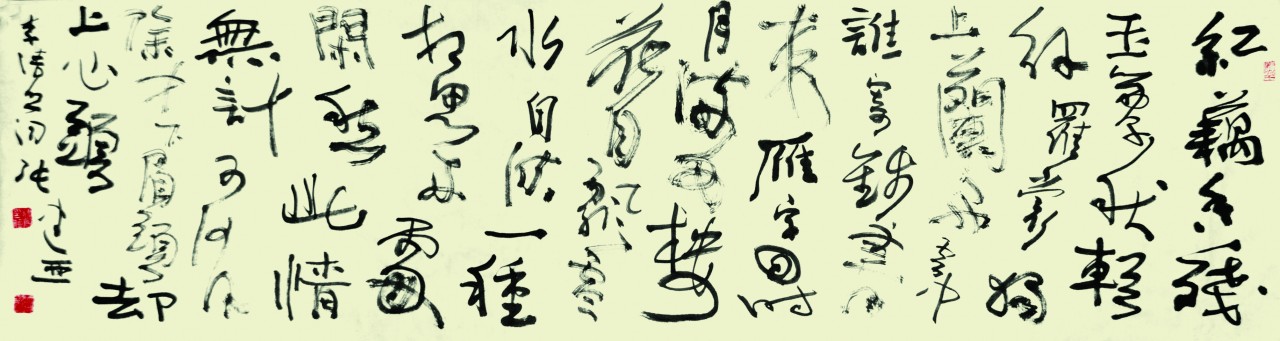 紅藕香殘
玉簟秋輕
解羅裳獨
上蘭舟雲中
誰寄錦書
來雁字回時
月滿西樓
花自飄零
水自流一種
相思兩處
閑愁此情
無計可消
除才下眉頭却
上心頭
李清照詞張建